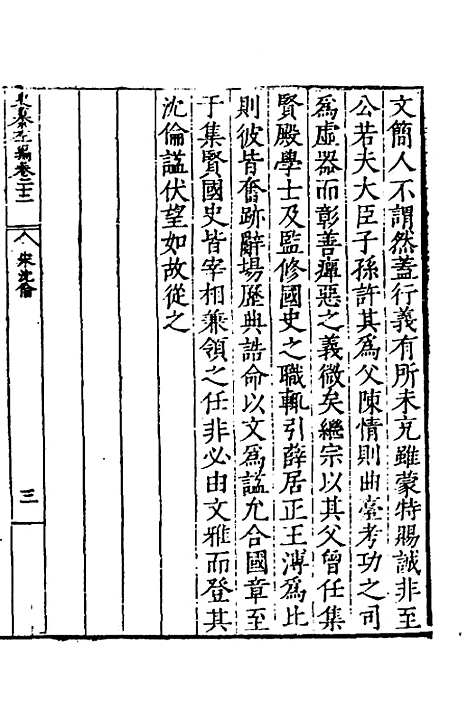 文簡人不謂然蓋行義有所未充雖蒙特賜誠非至
公若夫大臣子孫許其爲父陳情則曲臺考功之司
爲虛器而彰善癉惡之義微矣繼宗以其父曾任集
賢殿學士及監修國史之職輒引薛居正王溥爲比
則彼皆奮跡辭場歷典誥命以文爲謚允合國章至
于集賢國史皆宰相兼領之任非必由文雅而登其
沈倫謚伏望如故從之
史纂左編卷二十二
宋沈倫
三